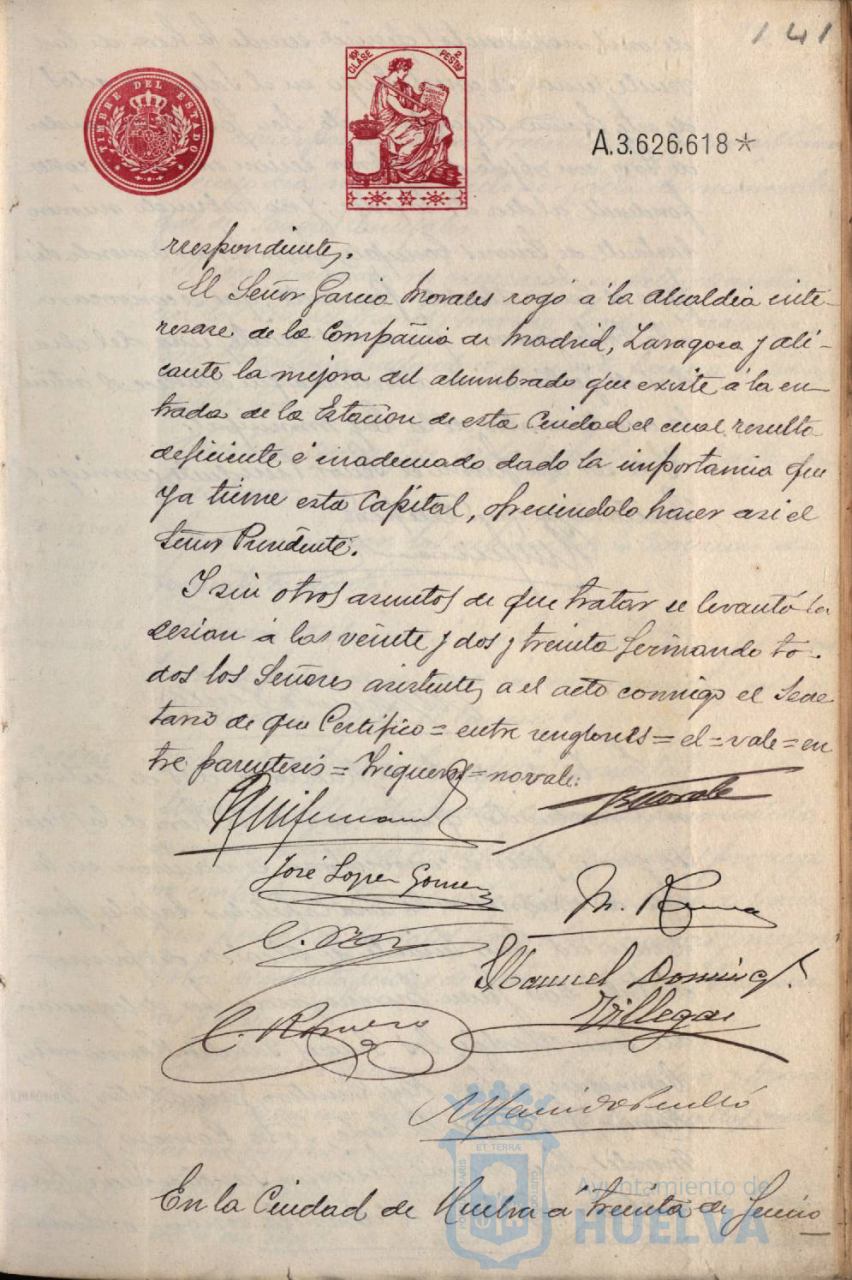 141
TIMBRE DEL ESTADO
10ª CLASE 2 PESETAS
A.3.626.618*
respondientes.
El Señor Garcia Morales rogó á la Alcaldia inte-
resase de la Compañia de Madrid, Zaragoza y Ali-
cante la mejora del alumbrado que existe á la en-
trada de la Estacion de esta Ciudad el cual resulta
deficiente é inadecuado dado la importancia que
ya tiene esta Capital, ofreciendolo hacer asi el
Señor Presidente.
Y sin otros asuntos de que tratar se levantó la
sesion á las veinte y dos y treinta firmando to-
dos los Señores asistentes a el acto conmigo el Secre
tario de que Certifico = entre renglones = el = vale = en
tre parentesis = Trigueros = no vale:
José Lopez Gomez
C. Romero
Manuel Doming.
Villegas
ET TERRÆ
Ayuntamiento de
HUELVA
En la Ciudad de Huelva á treinta de Junio